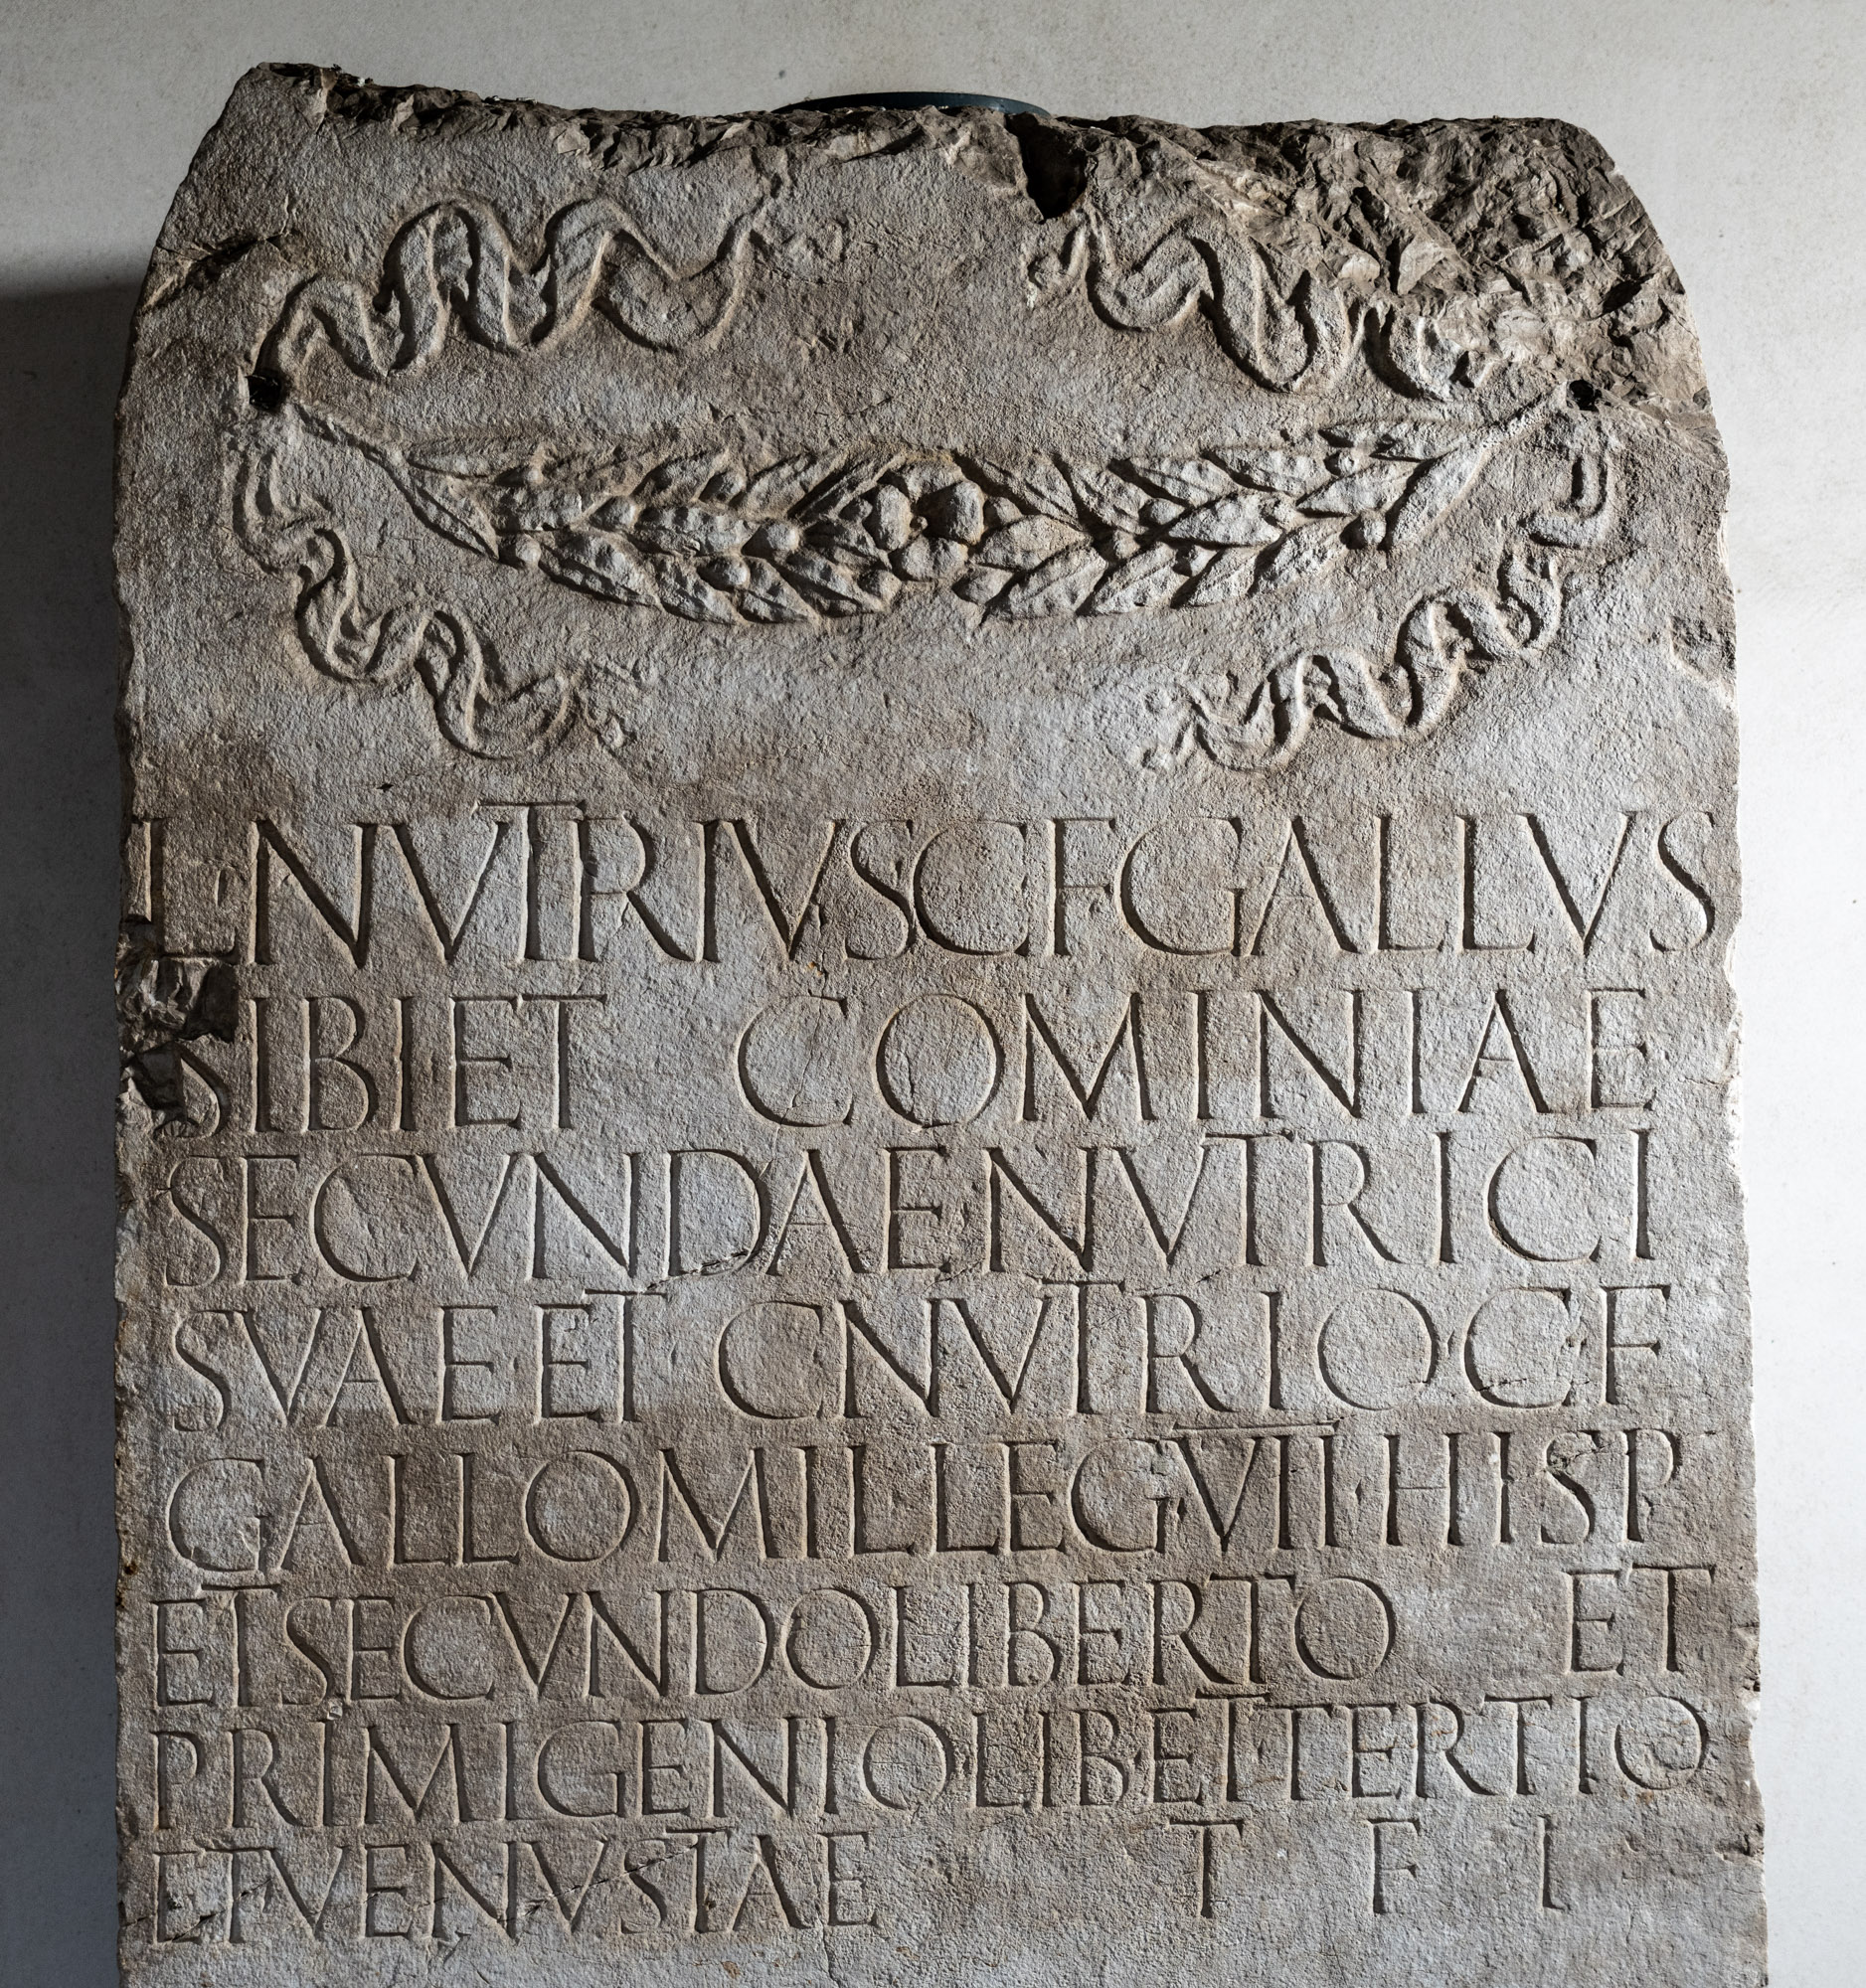 L·NVTRIVS C F GALLVS
SIBI ET COMINIAE
SECVNDAE NVTRICI
SVAE ET C NVTRIO·C F
GALLO MIL LEG·VII·HISP
ET SECVNDO LIBERTO ET
PRIMIGENIO LIB·ET TERTIO
ET VENVSTAE T F I